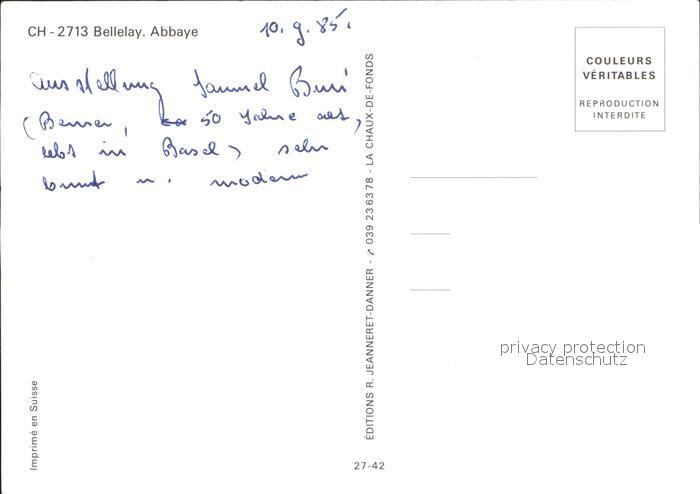 CH - 2713 Bellelay. Abbaye
10. 9. 85.
Ausstellung Samuel Buri
(Berner, 50 Jahre alt,
lebt in Basel) sehr
bunt u. modern
COULEURS
VÉRITABLES
REPRODUCTION
INTERDITE
ÉDITIONS R. JEANNERET-DANNER - 039 23 63 78 - LA CHAUX-DE-FONDS
privacy protection
Datenschutz
Imprimé en Suisse
27-42